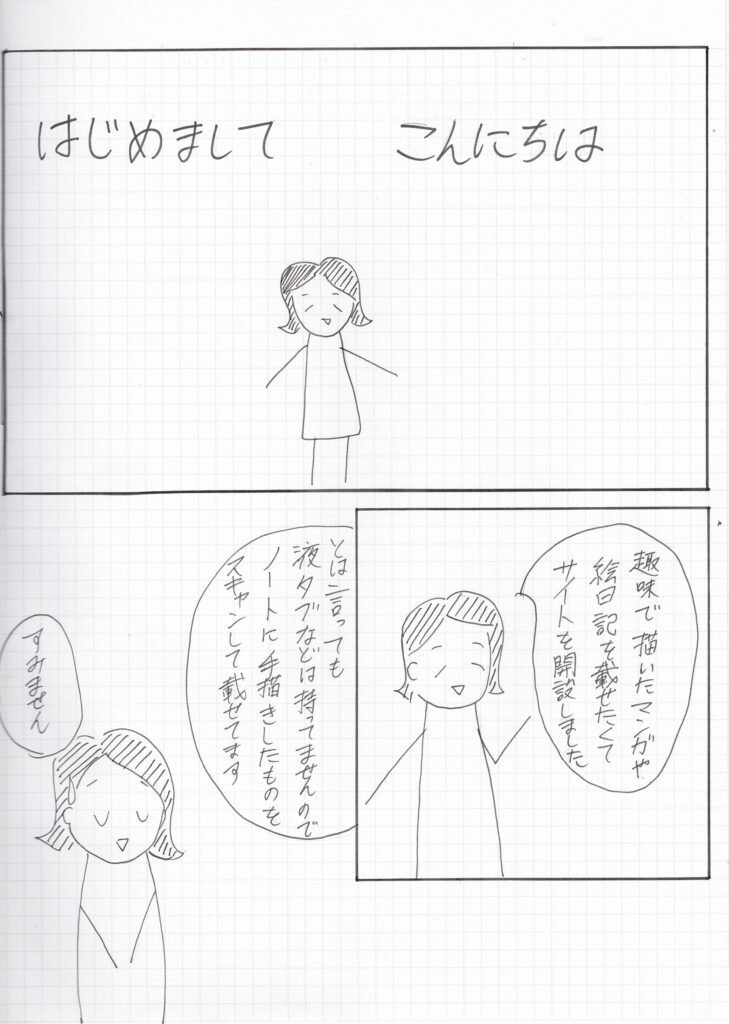 こんにちは
はじめまして
趣味で描いたマンガや
絵日記を載せたくて
サイトを開設しました
とは言っても
液タブなどは持ってませんので
ノートに手描きしたものを
スキャンして載せてます
すみません